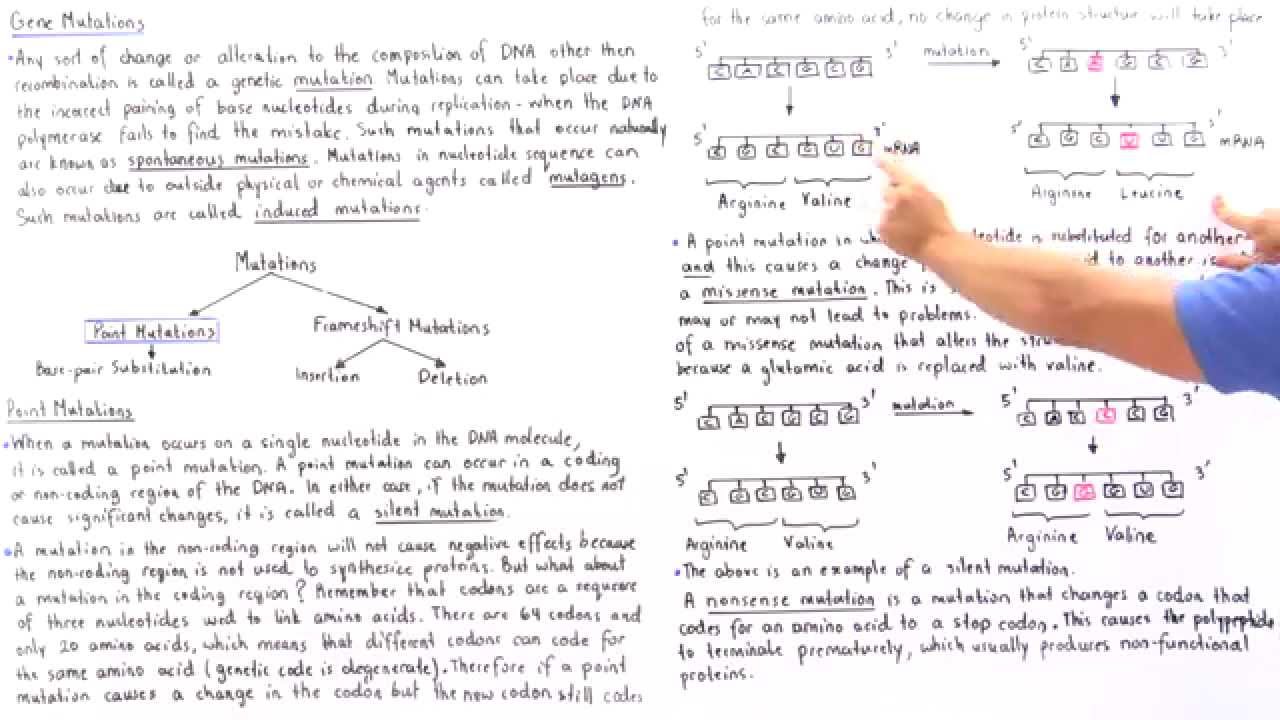 Gene Mutations
• Any sort of change or alteration to the composition of DNA other then
recombination is called a genetic mutation Mutations can take place due to
the incorrect pairing of base nucleotides during replication - when the DNA
polymerase fails to find the mistake. Such mutations that occur naturally
are known as spontaneous mutations. Mutations in nucleotide sequence can
also occur due to outside physical or chemical agents called mutagens.
Such mutations are called induced mutations.
Mutations
Point Mutations
Frameshift Mutations
Base-pair Substitution
Insertion
Deletion
Point Mutations
• When a mutation occurs on a single nucleotide in the DNA molecule,
it is called a point mutation. A point mutation can occur in a coding
or non-coding region of the DNA. In either case, if the mutation does not
cause significant changes, it is called a silent mutation.
• A mutation in the non-coding region will not cause negative effects because
the non-coding region is not used to synthesice proteins. But what about
a mutation in the coding region? Remember that codons are a sequence
of three nucleotides used to link amino acids. There are 64 codons and
only 20 amino acids, which means that different codons can code for
the same amino acid (genetic code is degenerate). Therefore if a point
mutation causes a change in the codon but the new codon still codes
for the same amino acid, no change in protein structure will take place
5' 3' mutation 5' 3'
5' 3' mRNA 5' 3' mRNA
Arginine Valine Arginine Leucine
• A point mutation in is substituted for another
and this causes a change to another is
a missense mutation. This is
may or may not lead to problems.
of a missense mutation that alters the
because a glutamic acid is replaced with valine.
5' C A C G C G 3' mutation 5' 3'
5' 3' 5' 3'
Arginine Valine Arginine Valine
• The above is an example of a silent mutation.
A nonsense mutation is a mutation that changes a codon that
codes for an amino acid to a stop codon. This causes the polypeptide
to terminate prematurely, which usually produces non-functional
proteins.